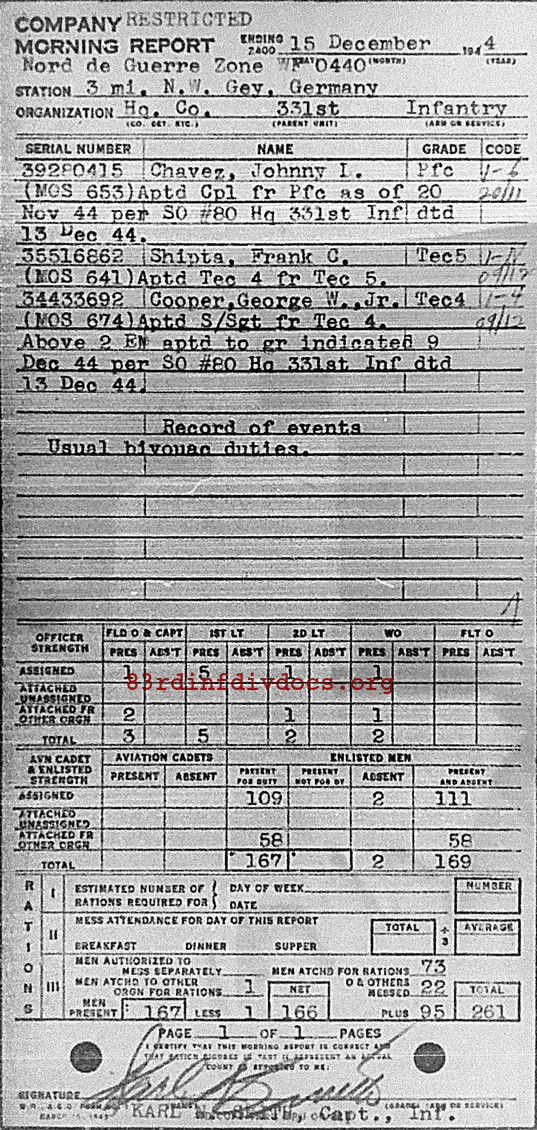 COMPANY RESTRICTED
MORNING REPORT ENDING 2400 15 December 1944
(DAY) (MONTH) (YEAR)
Nord de Guerre Zone WF 0440
STATION 3 mi. N.W. Gey, Germany
ORGANIZATION Hq. Co. 331st Infantry
(CO. DET. ETC.) (PARENT UNIT) (ARM OR SERVICE)
SERIAL NUMBER NAME GRADE CODE
39280415 Chavez, Johnny L. Pfc
(MOS 653)Aptd Cpl fr Pfc as of 20 20/11
Nov 44 per SO #80 Hq 331st Inf dtd
13 Dec 44.
35516862 Shipta, Frank C. Tec5
(MOS 641)Aptd Tec 4 fr Tec 5. 09/12
34433692 Cooper,George W.,Jr. Tec4
(MOS 674)Aptd S/Sgt fr Tec 4. 09/12
Above 2 EM aptd to gr indicated 9
Dec 44 per SO #80 Hq 331st Inf dtd
13 Dec 44.
Record of events
Usual bivouac duties.
OFFICER STRENGTH FLD O & CAPT 1ST LT 2D LT WO FLT O
PRES ABS'T PRES ABS'T PRES ABS'T PRES ABS'T PRES ABS'T
ASSIGNED 1 5 1 1
83rdinfdivdocs.org
ATTACHED UNASSIGNED
ATTACHED FR OTHER ORGN 2 1 1
TOTAL 3 5 2 2
AVN CADET & ENLISTED STRENGTH AVIATION CADETS ENLISTED MEN
PRESENT ABSENT PRESENT FOR DUTY PRESENT NOT FOR DY ABSENT PRESENT AND ABSENT
ASSIGNED 109 2 111
ATTACHED UNASSIGNED
ATTACHED FR OTHER ORGN 58 58
TOTAL 167 2 169
RATIONS
I ESTIMATED NUMBER OF RATIONS REQUIRED FOR DAY OF WEEK DATE NUMBER
II MESS ATTENDANCE FOR DAY OF THIS REPORT TOTAL ÷ 3 AVERAGE
BREAKFAST DINNER SUPPER
III MEN AUTHORIZED TO MESS SEPARATELY MEN ATCHD FOR RATIONS 73
MEN ATCHD TO OTHER ORGN FOR RATIONS 1 NET O & OTHERS MESSED 22 TOTAL
MEN PRESENT 167 LESS 1 166 PLUS 95 261
PAGE 1 OF 1 PAGES
I CERTIFY THAT THIS MORNING REPORT IS CORRECT AND
SIGNATURE
KARL N. SMITH, Capt., Inf.